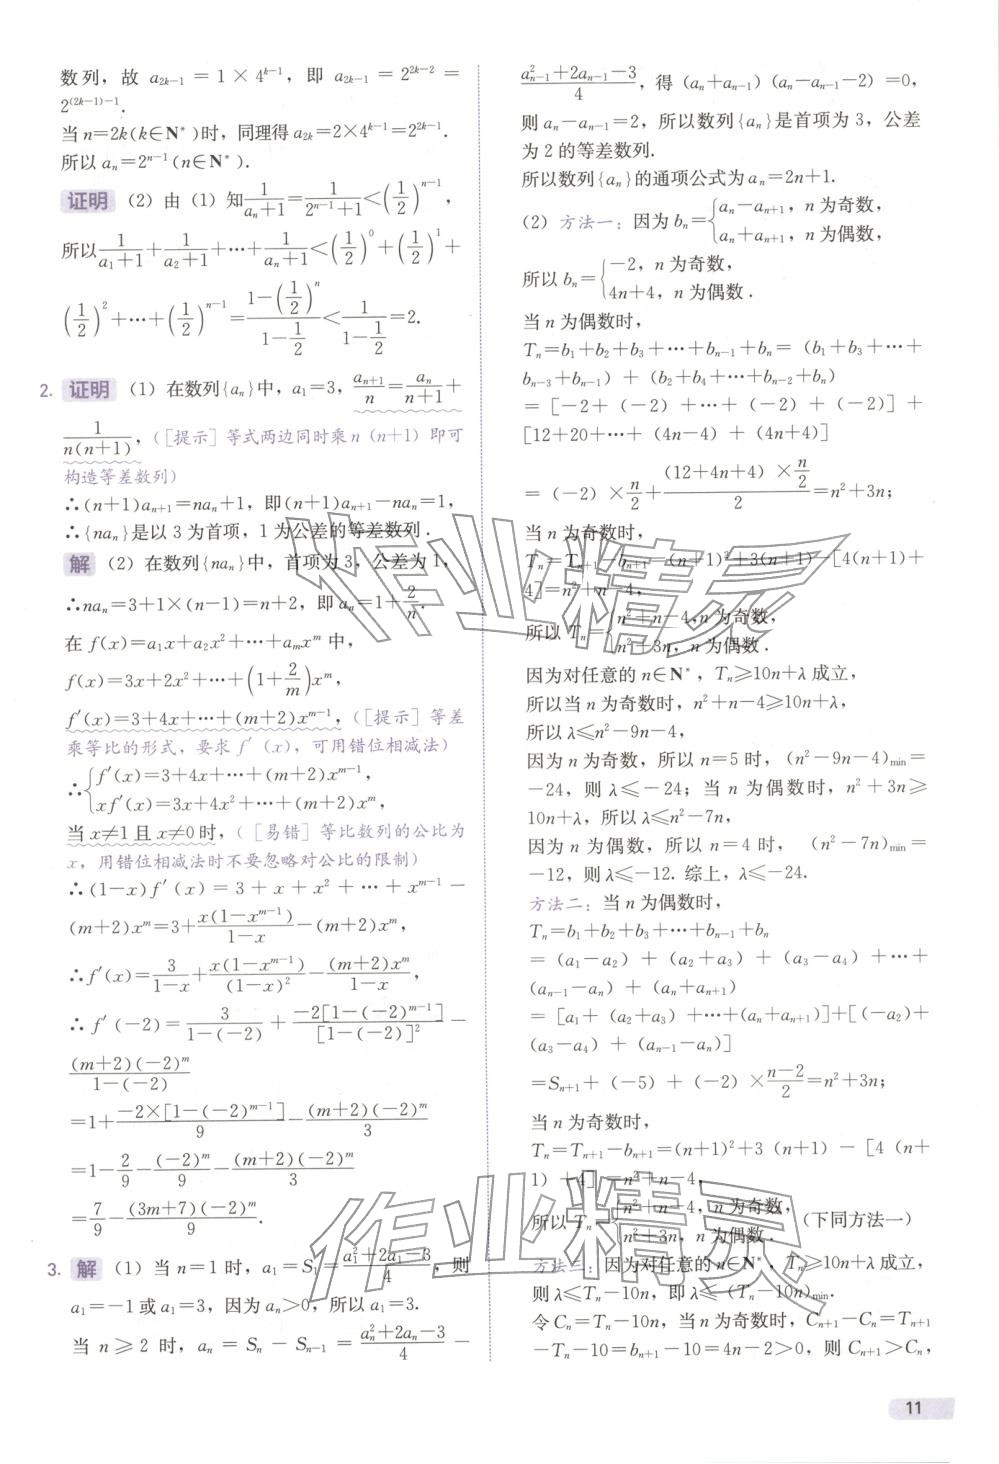 数列，故 a_{2k-1} = 1×4^{k-1}，即 a_{2k-1} = 2^{2k-2} =
2^{(2k-1)-1}.
当n=2k(k∈N*)时，同理得a_{2k}=2×4^{k-1}=2^{2k-1}.
所以 a_n=2^{n-1}(n∈N*).
证明 (2) 由（1）知\frac{1}{a_n+1}=\frac{1}{2^{n-1}+1}<(\frac{1}{2})^{n-1}，
所以\frac{1}{a_1+1}+\frac{1}{a_2+1}+…+\frac{1}{a_n+1}<(\frac{1}{2})^0+(\frac{1}{2})^1+
(\frac{1}{2})^2+…+(\frac{1}{2})^{n-1}=\frac{1-(\frac{1}{2})^n}{1-\frac{1}{2}}<\frac{1}{1-\frac{1}{2}}=2.
2. 证明 (1) 在数列{a_n}中，a_1=3，\frac{a_{n+1}}{n}=\frac{a_n}{n+1}+
\frac{1}{n(n+1)}，（［提示］等式两边同时乘n（n+1）即可
构造等差数列）
∴(n+1)a_{n+1}=na_n+1，即(n+1)a_{n+1}-na_n=1，
∴{na_n}是以3为首项，1为公差的等差数列.
解 (2) 在数列{na_n}中，首项为3，公差为1，
∴na_n=3+1×(n-1)=n+2，即a_n=1+\frac{2}{n}.
在 f(x)=a_1x+a_2x^2+…+a_mx^m 中，
f(x)=3x+2x^2+…+(1+\frac{2}{m})x^m，
f'(x)=3+4x+…+(m+2)x^{m-1}，（［提示］等差
乘等比的形式，要求 f'（x），可用错位相减法）
∴{f'(x)=3+4x+…+(m+2)x^{m-1}，
xf'(x)=3x+4x^2+…+(m+2)x^m，
当x≠1且x≠0时，（［易错］等比数列的公比为
x，用错位相减法时不要忽略对公比的限制）
∴(1-x)f'(x)=3+x+x^2+…+x^{m-1}-
(m+2)x^m=3+\frac{x(1-x^{m-1})}{1-x}-(m+2)x^m，
∴f'(x)=\frac{3}{1-x}+\frac{x(1-x^{m-1})}{(1-x)^2}-\frac{(m+2)x^m}{1-x}，
∴f'(-2)=\frac{3}{1-(-2)}+\frac{-2[1-(-2)^{m-1}]}{[1-(-2)]^2}-
\frac{(m+2)(-2)^m}{1-(-2)}
=1+\frac{-2×[1-(-2)^{m-1}]}{9}-\frac{(m+2)(-2)^m}{3}
=1-\frac{2}{9}-\frac{(-2)^m}{9}-\frac{(m+2)(-2)^m}{3}
=\frac{7}{9}-\frac{(3m+7)(-2)^m}{9}.
3. 解 (1) 当n=1时，a_1=S_1=\frac{a_1^2+2a_1-3}{4}，则
a_1=-1或a_1=3，因为a_n>0，所以a_1=3.
当 n≥2 时，a_n = S_n - S_{n-1} = \frac{a_n^2+2a_n-3}{4} -
\frac{a_{n-1}^2+2a_{n-1}-3}{4}，得 (a_n+a_{n-1})(a_n-a_{n-1}-2)=0，
则a_n-a_{n-1}=2，所以数列{a_n}是首项为3，公差
为2的等差数列.
所以数列{a_n}的通项公式为a_n=2n+1.
(2) 方法一：因为b_n={a_n-a_{n+1}，n为奇数，
a_n+a_{n+1}，n为偶数，
所以 b_n={-2，n为奇数，
4n+4，n为偶数.
当n为偶数时，
T_n=b_1+b_2+b_3+…+b_{n-1}+b_n=（b_1+b_3+…+
b_{n-3}+b_{n-1}）+（b_2+b_4+…+b_{n-2}+b_n）
=［-2+（-2）+…+（-2）+（-2）］+
［12+20+…+（4n-4）+（4n+4）］
=（-2）×\frac{n}{2}+\frac{(12+4n+4)×\frac{n}{2}}{2}=n^2+3n；
当n为奇数时，
T_n=T_{n+1}-b_{n+1}=(n+1)^2+3(n+1)-[4(n+1)+
4]=n^2+n-4，
所以 T_n={n^2+n-4，n为奇数，
n^2+3n，n为偶数.
因为对任意的n∈N*，T_n≥10n+λ成立，
所以当n为奇数时，n^2+n-4≥10n+λ，
所以 λ≤n^2-9n-4，
因为n为奇数，所以n=5时，(n^2-9n-4)_{min}=
-24，则 λ≤-24；当 n 为偶数时，n^2+3n≥
10n+λ，所以λ≤n^2-7n，
因为 n 为偶数，所以 n=4 时，（n^2-7n)_{min}=
-12，则λ≤-12. 综上，λ≤-24.
方法二：当n为偶数时，
T_n=b_1+b_2+b_3+…+b_{n-1}+b_n
=（a_1-a_2）+（a_2+a_3）+（a_3-a_4）+…+
(a_{n-1}-a_n）+（a_n+a_{n+1}）
=［a_1+（a_2+a_3）+…+(a_n+a_{n+1})]+[(-a_2)+
(a_3-a_4）+（a_{n-1}-a_n)］
=S_{n+1}+（-5）+（-2）×\frac{n-2}{2}=n^2+3n；
当n为奇数时，
T_n=T_{n+1}-b_{n+1}=(n+1)^2+3（n+1）-［4（n+
1）+4］=n^2+n-4，
所以 T_n={n^2+n-4，n为奇数，
n^2+3n，n为偶数.
（下同方法一）
方法三：因为对任意的n∈N*，T_n≥10n+λ成立，
所以λ≤T_n-10n，即λ≤（T_n-10n)_{min}.
令C_n=T_n-10n，当n为奇数时，C_{n+1}-C_n=T_{n+1}
-T_n-10=b_{n+1}-10=4n-2>0，则 C_{n+1}>C_n，
11
作业精灵
作业精灵